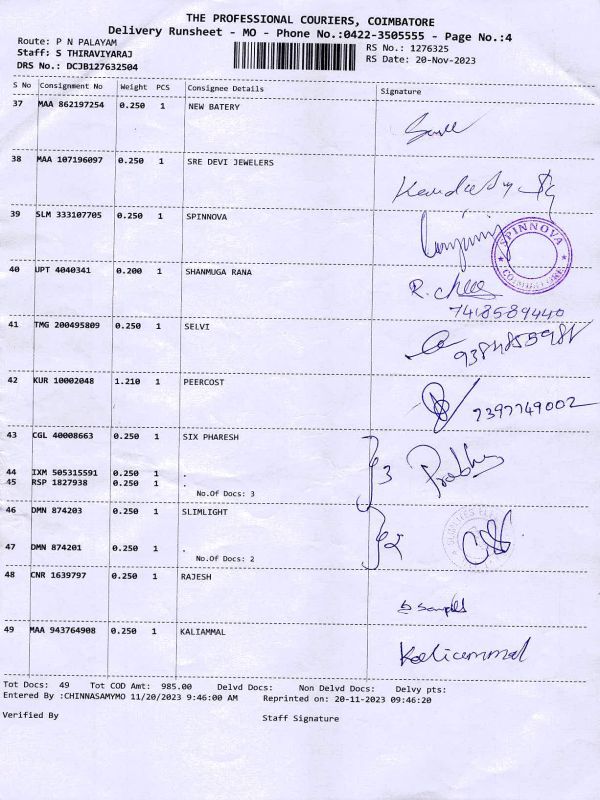 THE PROFESSIONAL COURIERS, COIMBATORE
Delivery Runsheet - MO - Phone No.:0422-3505555 - Page No.:4
Route: P N PALAYAM
Staff: S THIRAVIYARAJ
DRS No.: DCJB127632504
RS No.: 1276325
RS Date: 20-Nov-2023
S No Consignment No Weight PCS Consignee Details Signature
37 MAA 862197254 0.250 1 NEW BATERY
38 MAA 107196097 0.250 1 SRE DEVI JEWELERS
39 SLM 333107705 0.250 1 SPINNOVA
SPINNOVA COIMBATORE
40 UPT 4040341 0.200 1 SHANMUGA RANA
7418589440
41 TMG 200495809 0.250 1 SELVI
42 KUR 10002048 1.210 1 PEERCOST
7397749002
43 CGL 40008663 0.250 1 SIX PHARESH
44 IXM 505315591 0.250 1 .
45 RSP 1827938 0.250 1 .
No.Of Docs: 3
3 Prabhu
46 DMN 874203 0.250 1 SLIMLIGHT
47 DMN 874201 0.250 1 .
No.Of Docs: 2
2
48 CNR 1639797 0.250 1 RAJESH
49 MAA 943764908 0.250 1 KALIAMMAL
Kaliammal
Tot Docs: 49 Tot COD Amt: 985.00 Delvd Docs: Non Delvd Docs: Delvy pts:
Entered By :CHINNASAMYMO 11/20/2023 9:46:00 AM Reprinted on: 20-11-2023 09:46:20
Verified By Staff Signature